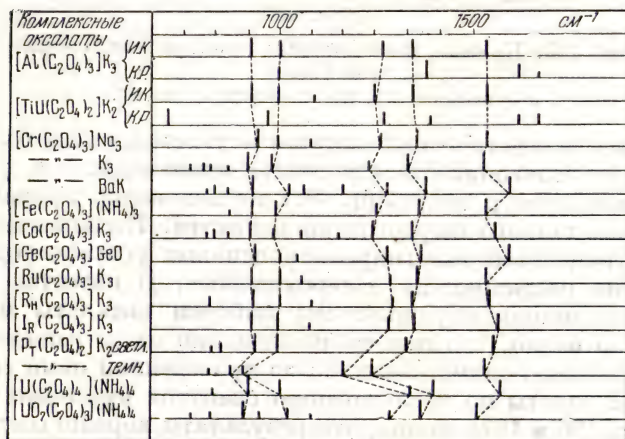 Комплексные 1000 1500 см⁻¹
оксалаты
[Al(C₂O₄)₃]K₃ { ИК
КР
[TiU(C₂O₄)₂]K₂ { ИК
КР
[Cr(C₂O₄)₃]Na₃
— " — K₃
— " — BaK
[Fe(C₂O₄)₃](NH₄)₃
[Co(C₂O₄)₃]K₃
[Ge(C₂O₄)₃]GeO
[Ru(C₂O₄)₃]K₃
[Rh(C₂O₄)₃]K₃
[IR(C₂O₄)₃]K₃
[PT(C₂O₄)₂]K₂ светл.
— " — темн.
[U(C₂O₄)₄](NH₄)₄
[UO₂(C₂O₄)₃](NH₄)₄